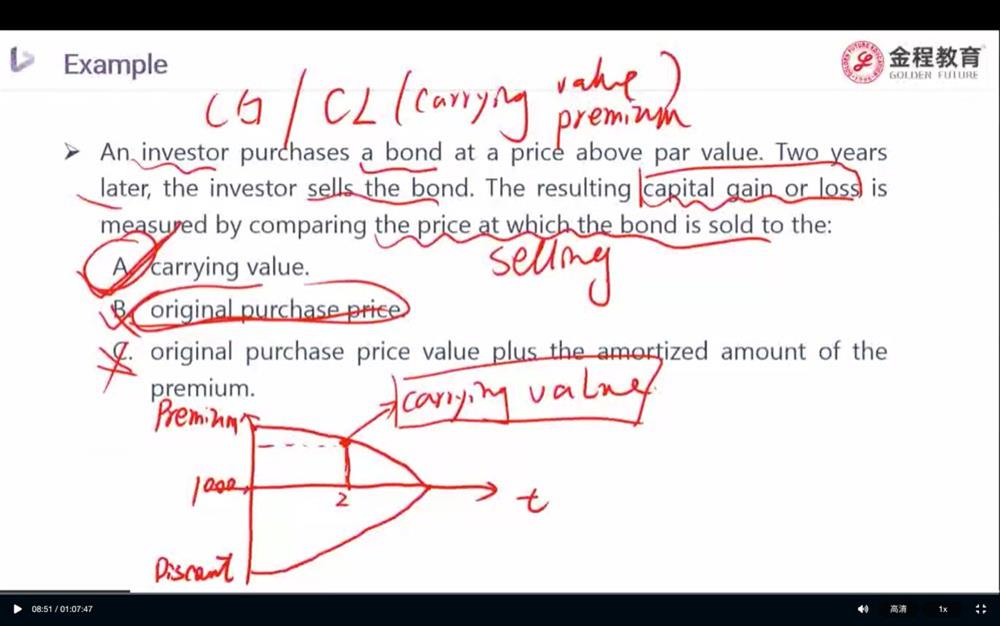 Example
金程教育
GOLDEN FUTURE
CG / CL (carrying value)
premium
➤ An investor purchases a bond at a price above par value. Two years
later, the investor sells the bond. The resulting capital gain or loss is
measured by comparing the price at which the bond is sold to the:
selling
A. carrying value.
B. original purchase price
C. original purchase price value plus the amortized amount of the
premium.
carrying value
Premium
1000
2
t
Discount
08:51 / 01:07:47
高清
1x